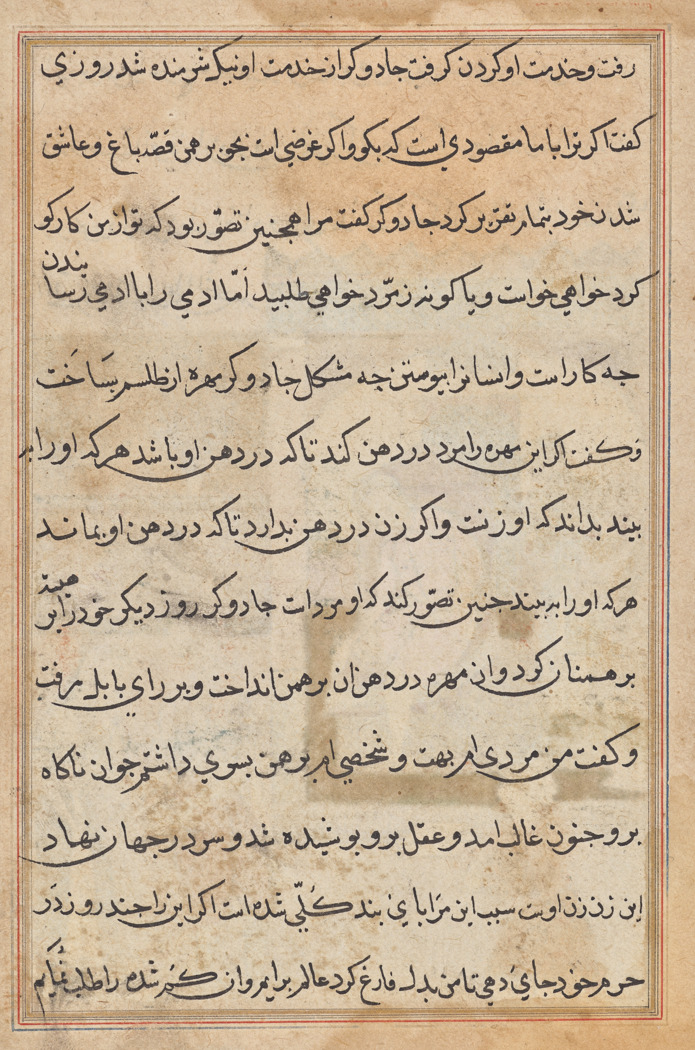 رفت و خدمت او کردن گرفت جادوگر از خدمت او نیک شرمنده شد روزی
گفت اگر ترا با ما مقصودی است که بگو و اگر غرضی است بجو برهمن قصّه باغ و عاشق
شدن خود بتمام تقریر کرد جادوگر گفت مرا همچنین تصوّر بود که تو از من کار کو
کرد خواهی خواست و یا کونه زمرّد خواهی طلبید امّا ادمی را با ادمی رسانیدن
چه کار است و انسانرا بپوستن چه مشکل جادوگر مهره از طلسم بساخت
و گفت اگر این مهره را مرد در دهن کند تا که در دهن او باشد هر که او را به
بیند بداند که او زنت و اگر زن در دهن بدارد تا که در دهن او بماند
هر که او را به بیند چنین تصوّر کند که او مردات جادوگر روز دیگر خود را بر هیئة
برهمنان کرد و ان مهره در دهن ان برهمن انداخت و بر رای بابل رفت
و گفت من مردی ام بهت و شخصی ام برهمن بسوی داشتم جوان ناکاه
برو جنون غالب امد و عقل برو پوشیده شد و سر در جهان نهاد
این زن زن اوست سبب این مرا پای بند کلّی شده است اگر این را چند روز در
حرم خود جای دهی تا من بدل فارغ گرد عالم برایم و ان کم شده را طلب نمایم